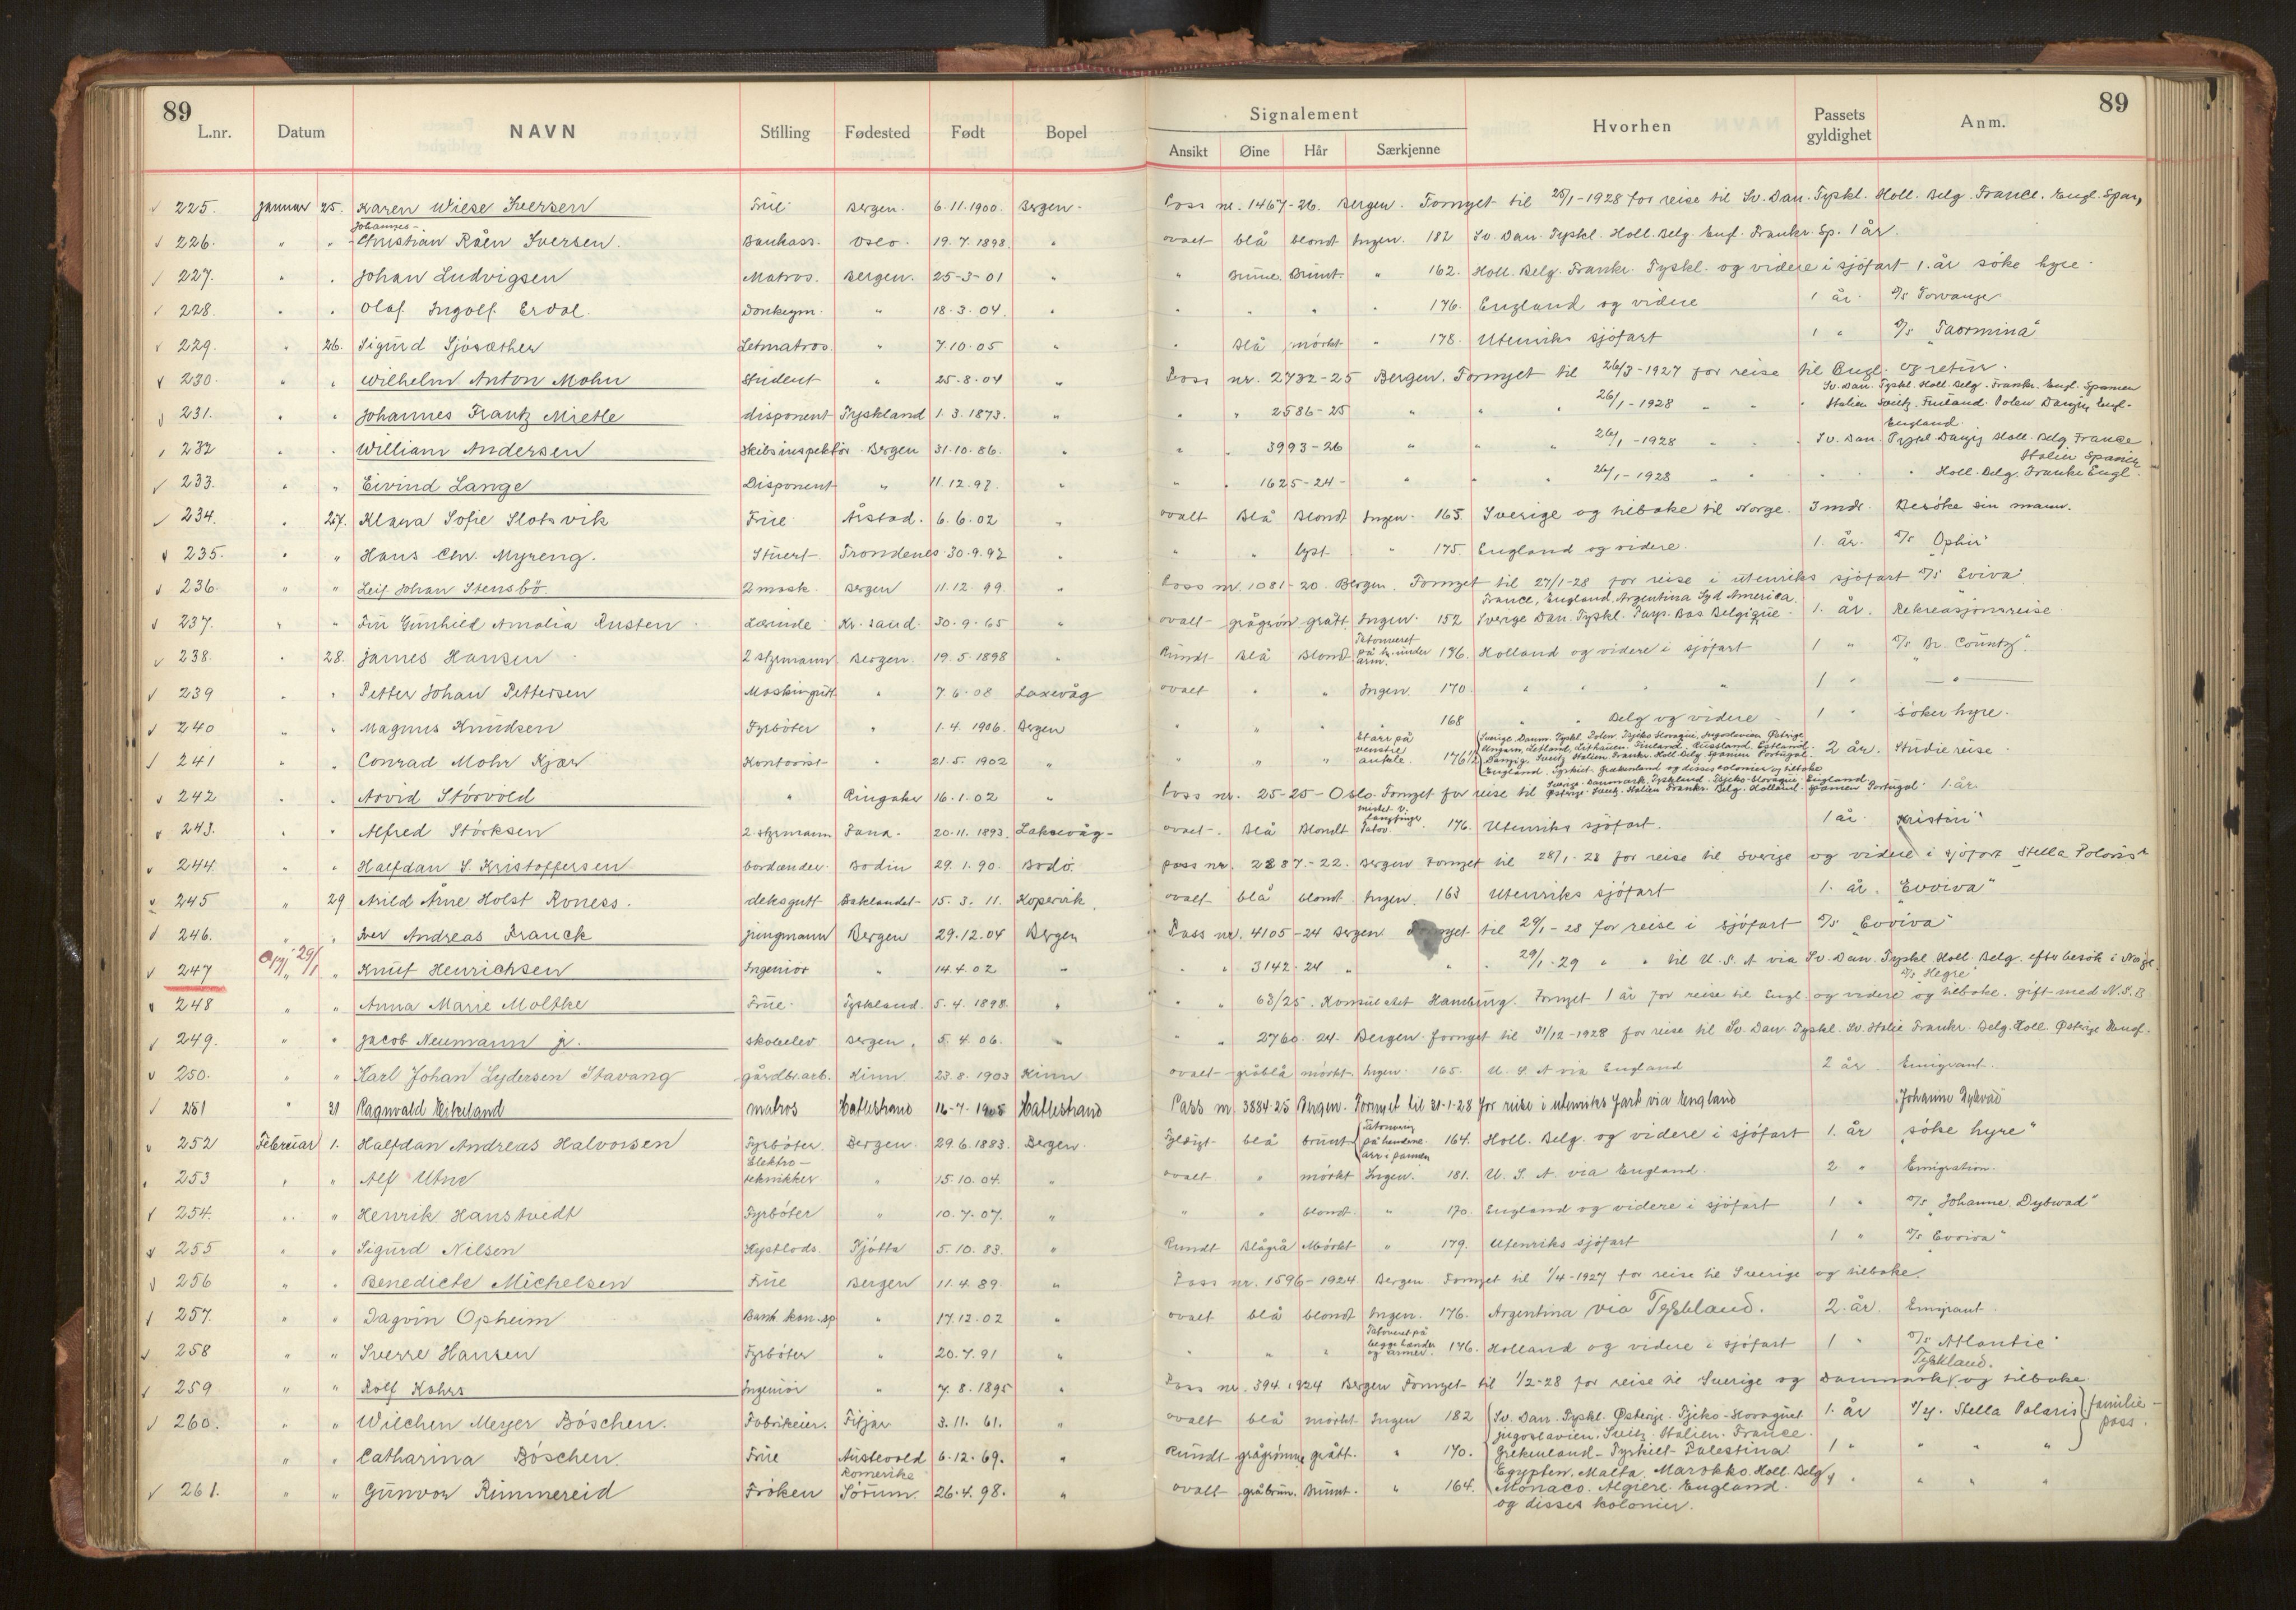 89 89
L.nr. Datum NAVN Stilling Fødested Født Bopel Signalement Hvorhen Passets gyldighet Anm.
Ansikt Øine Hår Særkjenne
225. januar 25. Karen Wiese Iversen Frue Bergen. 6.11.1900. Bergen. Pass nr. 1467-26. Bergen. Fornyet til 25/1-1928 for reise til Sv. Dan. Tyskl. Holl. Belg. France. Engl. Span,
Johannes-
226. " " Christian Råen Iversen. Bankass. Oslo. 19.7.1898. " ovalt blå blondt Ingen. 182 Sv. Dan. Tyskl. Holl. Belg. Engl. Frankr. Sp. 1 år.
227. " " Johan Ludvigsen Matros. Bergen. 25-3-01 " " Brune. Brunt. " 162. Holl. Belg. Frankr. Tyskl. og videre i sjöfart 1. år söke hyre.
228. " " Olaf Ingolf Erdal. Donkeym. " 18.3.04. " " " " " 176. England og videre 1 år.
229. " 26. Sigurd Sjösæther Letmatros. " 7.10.05 " " Blå mörkt " 178. Utenriks sjöfart 1 " D/S "Taormina"
230. " " Wilhelm Anton Mohn Student " 25.8.04 " Pass nr. 2732-25 Bergen. Fornyet til 26/3-1927 for reise til Engl. og retur.
Sv. Dan. Tyskl. Holl. Belg. Frankr. Engl. Spanien
231. " " Johannes Frantz Miethe disponent Tyskland 1.3.1873. " " " 2586-25 " " " 26/1-1928 " " " Italien Sveitz. Finland. Polen Danzig Engl.
England.
232 " " William Andersen Skibsinspektör. Bergen 31.10.86. " " " 3993-26 " " " 26/1-1928 " " " Sv. Dan. Tyskl. Danzig Holl. Belg. France
Italien Spanien
233. " " Eivind Lange Disponent " 11.12.97. " " " 1625-24- " " " 26/1-1928 " " " Holl. Belg. Frankr. Engl.
234. " 27. Klara Sofie Slotsvik Frue Årstad. 6.6.02 " ovalt Blå Blondt Ingen. 165. Sverige og tilbake til Norge. 3 mdr. Besöke sin mann.
235. " " Hans Chr. Myreng. Stuert Trondenes 30.9.92 " " " lyst " 175. England og videre. 1. år. D/S "Ophir"
236. " " Leif Johan Stensbö. 2 mask. Bergen 11.12.99. " Pass nr. 1081-20. Bergen. Fornyet til 27/1-28 for reise i utenriks sjöfart D/S Eviva"
France, England, Argentina Syd America.
237. " " Fru Gunhild Amalia Rusten Lærinde Kr. sand. 30.9.65 " ovalt grågrön grått. Ingen. 152 Sverige Dan. Tyskl. Pays. Bas Belgique. 1. år. Rekreasjonsreise.
Tatoueret
238. " 28. James Hansen 2 styrmann Bergen. 19.5.1898 " Rundt Blå Blondt på h. under arm. 176. Holland og videre i sjöfart 1 " D/S "Br. County."
239 " " Petter Johan Pettersen Maskingutt " 7.6.08 Laxevåg ovalt " " Ingen. 170. " " " 1 " — " —
240 " " Magnus Knudsen Fyrböter " 1.4.1906. Bergen " " " 168 " " Belg og videre 1 " söker hyre.
Sverige. Danm. Tyskl. Polen, Tsjeko Slovaquie, Jugoslavien Østrige
Et arr på venstre
Ungarn, Letland, Lithauen. Finland. Russland. Estland.
241 " " Conrad Mohr Kjær Kontorist " 21.5.1902 " " " " 176 1/2 Danzig, Sveitz Italien Frankr. Holl. Belg. Spanien Portugal 2 år. Studiereise.
England. Tyrkiet. Grækenland og disses colonier og tilbake
Sverige. Danmark. Tyskland. Tsjeko-Slovaquie. England
242 " " Arvid Störvold " Ringsaker 16.1.02 " Pass nr. 25-25- Oslo. Fornyet for reise til Østrige. Sveitz. Italien Frankr. Belg. Holland. Spanien Portugal. 1. år.
mistet v. langfinger
243. " " Alfred Störksen 2 styrmann Fana. 20.11.1893. Laksevåg- ovalt. Blå Blondt Tatov. 176. Utenriks sjöfart. 1 år. "Kristin"
244 " " Halfdan S. Kristoffersen Bodin 29.1.90. Bodö. pass nr. 2287-22. Bergen Fornyet til 28/1-28 for reise til Sverige og videre i sjöfart "Stella Polaris"
245 " 29 Arild Arne Holst Roness. deksgutt 15.3.11. Kopervik. ovalt blå blondt Ingen. 163 Utenriks sjöfart 1. år. "Evviva"
246. " " Iver Andreas Franck jungmann Bergen 29.12.04 Bergen Pass nr. 4105-24 Bergen til 29/1-28 for reise i sjöfart D/S "Evviva"
29/1
247 " " Knut Henrichsen Ingeniör " 14.4.02 " " " 3142-24 " " " 29/1-29 " " til U.S.A via Sv. Dan. Tyskl. Holl. Belg. efter besök i Norge.
D/S "Hegre"
248 " " Anna Marie Moltke Frue. Tyskland. 5.4.1898. " " " 63/25. Konsulatet Hamburg. Fornyet 1 år for reise til Engl. og videre og tilbake. gift med N.S.B.
249. " " Jacob Neumann jr. skoleelev Bergen. 5.4.06. " " " 2760. 24. Bergen. fornyet til 31/12-1928 for reise til Sv. Dan. Tyskl. Sv. Italie Frankr. Belg. Holl. Østrige
250. " " Karl Johan Lydersen Stavang gårdbr.arb. Kinn. 23.8.1903 Kinn ovalt gråblå mörkt. Ingen. 165. U.S.A via England 2 år. Emigrant.
251 " 31 Ragnvald Eikeland matros Hatlestrand 16-7-1905 Hatlestrand Pass nr 3884-25 Bergen. Fornyet til 31-1-28 for reise i utenriks fart via England "Johanne Dybvad"
Tatovering
252 Februar 1. Halfdan Andreas Halvorsen Fyrböter. Bergen. 29.6.1883. Bergen. Fyldigt. blå brunt på hendene. arr i pannen 164. Holl. Belg. og videre i sjöfart 1. år "söke hyre"
Elektro-
253 " " Alf Utne teknikker " 15.10.04. " ovalt " mörkt Ingen. 181. U.S.A. via England. 2 " Emigration.
254. " " Henrik Hanstvedt Fyrböter " 10.7.07. " " " blondt " 170. England og videre i sjöfart 1 " D/S "Johanne Dybwad"
255 " " Sigurd Nilsen Kystlods. Tjötta 5.10.83. " Rundt Blågrå Mörkt " 179. Utenriks sjöfart 1 " D/S "Evviva"
256 " " Benedicte Michelsen Frue Bergen 11.4.89. " Pass nr. 1596-1924. Bergen Fornyet til 1/4-1927 for reise til Sverige og tilbake.
257. " " Dagvin Opheim " 17.12.02 " ovalt blå blondt Ingen. 176. Argentina via Tyskland. 2. år. Emigrant.
Tatoveret på
258 " " Sverre Hansen Fyrböter " 20.7.91 " " " " begge hænder og armer. 176. Holland og videre i sjöfart 1 " D/S "Atlantic"
Tyskland.
259 " " Rolf Kahrs Ingeniör " 7.8.1895 " Pass nr. 394. 1924 Bergen Fornyet til 1/2-28 for reise til Sverige og Danmark og tilbake
260. " " Wilchen Meyer Böschen. Fabrikeier. Fitjar 3.11.61. " ovalt blå mörkt Ingen 182 Sv. Dan. Tyskl. Østerige. Tjeko-Slovaquiet 1. år Stella Polaris familie-pass.
Jugoslavien. Sveitz. Italien. France.
" " Catharina Böschen. Frue Austevold 6.12.69. " Rundt grågrönne grått. " 170. Grekenland- Tyrkiet- Palestina 1 " " " "
Romerike Egypten. Malta. Marokko. Holl. Belg.
261. " " Gunvor Rimmereid Fröken Sörum. 26.4.98. " ovalt gråbrun. Brunt. " 164. Monaco. Algiere. England. " " " "
og disses kolonier.